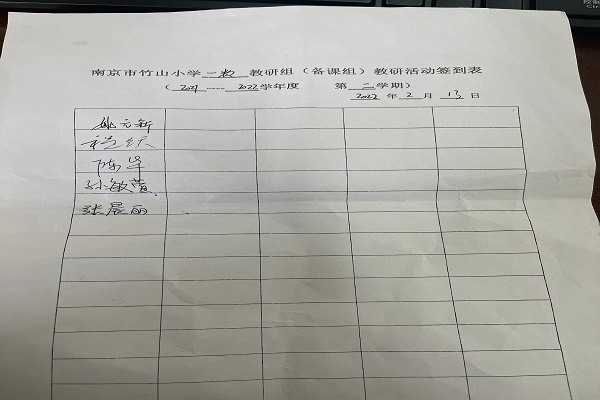 南京市竹山小学 二数 教研组（备课组）教研活动签到表
（ 2021 ---- 2022 学年度 第 二 学期）
2022 年 2 月 17 日
陈华
孙敏萱
张晨丽